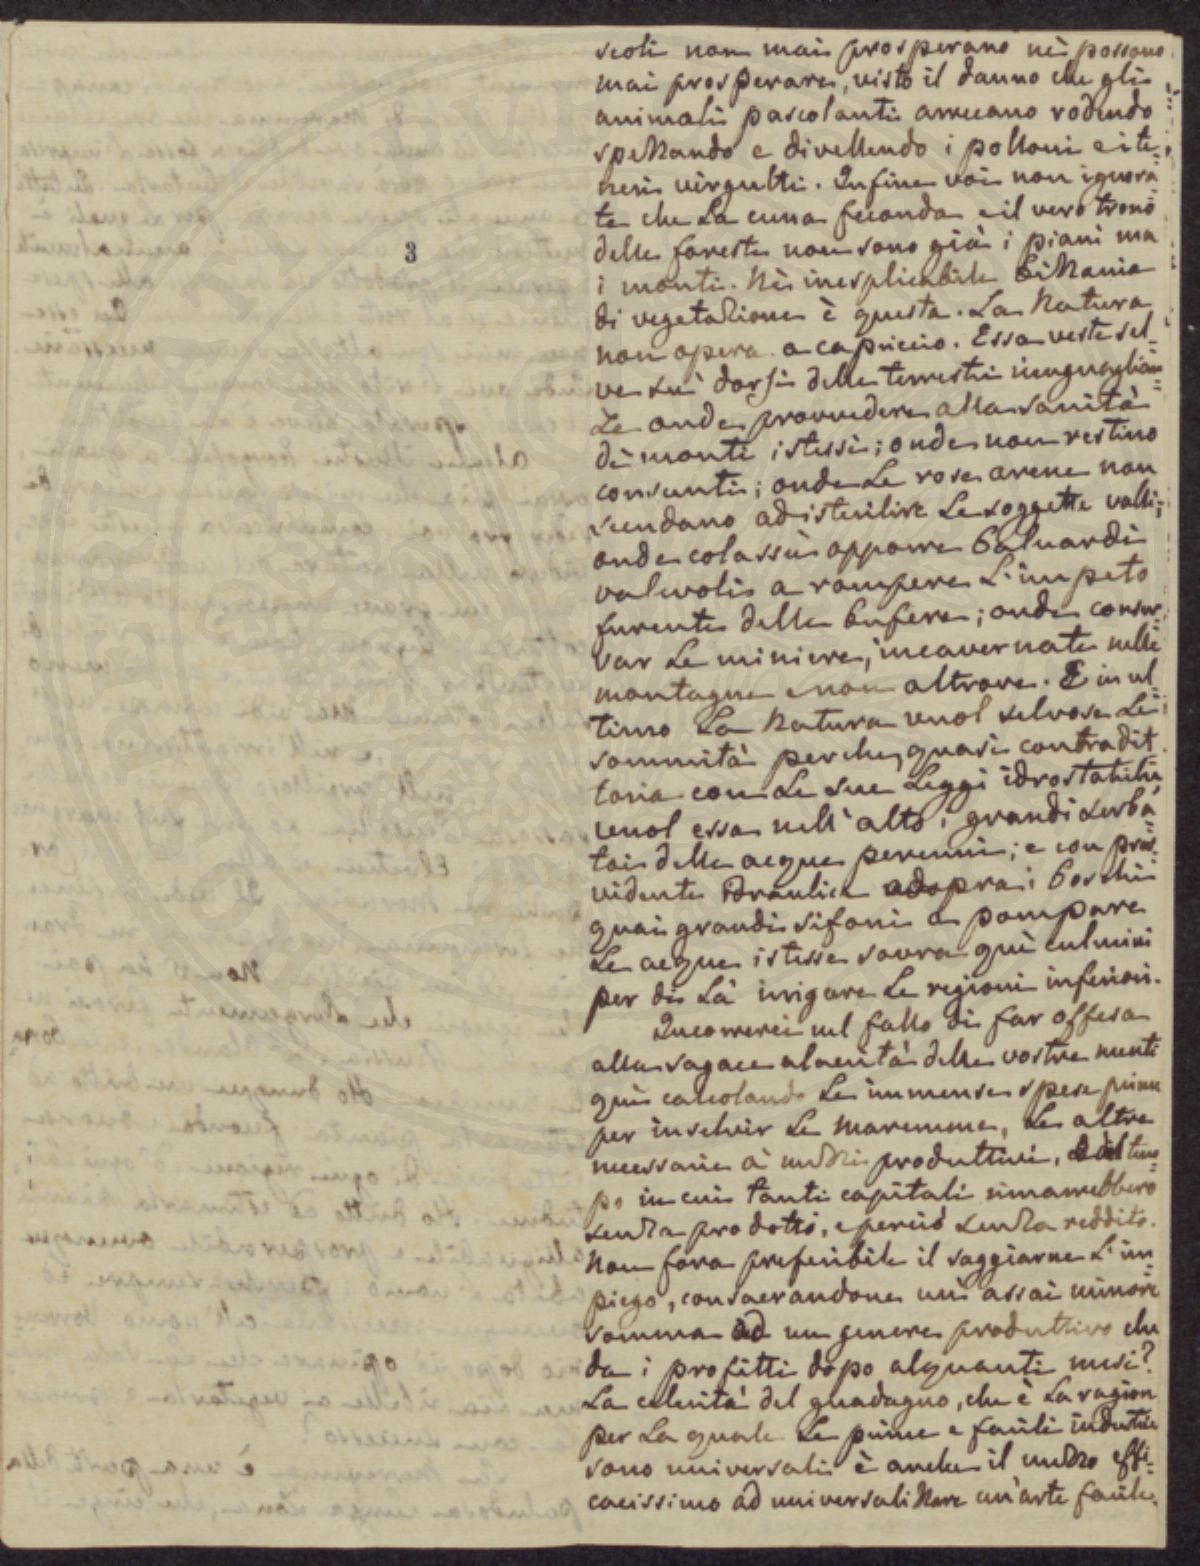 scoli non mai prosperano nè possono
mai prosperare, visto il danno che gli
animali pascolanti arrecano rodendo
spezzando e divellendo i polloni e i te-
neri virgulti. Infine voi non ignora-
te che la cuna feconda e il vero trono
delle foreste non sono già i piani ma
3
i monti. Nè inesplicabile bizzania
di vegetazione è questa. La Natura
non opera a capriccio. Essa veste sel-
ve su' dorsi delle terrestri ineguaglian-
ze onde provvedere alla sanità
de' monti istessi; onde non restino
consunti; onde le rose arene non
scendano ad isterilire le soggette valli;
onde colassù apporre baluardi
valevoli a rompere l'impeto
furente delle bufere; onde conser-
var le miniere, incavernate nelle
montagne e non altrove. E in ul-
timo la Natura vuol selvose le
sommità perchè, quasi contradit-
toria con le sue leggi idrostatiche
vuol essa nell'alto i grandi serba-
toi delle acque perenni; e con prov-
vidente idraulica adopra i boschi
quai grandi sifoni a pompare
le acque istesse sovra que' culmini
per di là irrigare le regioni inferiori.
Incorrerei nel fallo di far offesa
alla sagace alacrità delle vostre menti
qui calcolando le immense spese prime
per inselvir le maremme, le altre
necessarie a' mezzi produttivi, e il tem-
po in cui tanti capitali rimarrebbero
senza prodotto, e perciò senza reddito.
Non fora preferibile il saggiarne l'im-
piego, consacrandone un'assai minore
somma ad un genere produttivo che
da i profitti dopo alquanti mesi?
La celerità del guadagno, che è la ragion
per la quale le prime e facili industrie
sono universali è anche il mezzo effi-
cacissimo ad universalizzare un'arte facile,